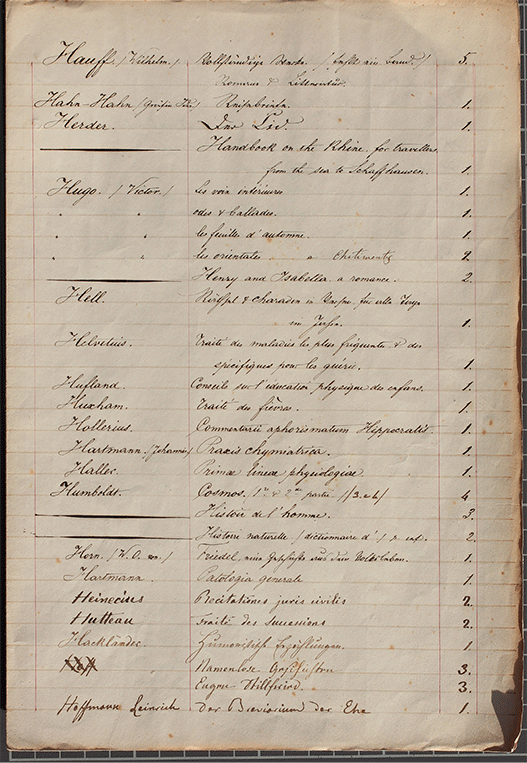 Hauff. / Wilhelm. / Vollständige 5.
Romane &
Hahn-Hahn / Gräfin Ida / Reisebriefe. 1.
Herder. Der Cid. 1.
Handbook on the Rhine for travellers
from the sea to Schaffhausen. 1.
Hugo. / Victor. / les voix intérieures 1.
" " odes & ballades. 1.
" " les feuilles d'automne. 1.
" " les orientales " chatiments 2.
Henry and Isabella a romance. 2.
Hell. Räthsel & Charaden in für alle
im 1.
Helvetius. Traité des maladies les plus fréquentes & des
spécifiques pour les guérir. 1.
Hufland. Conseils sur l'éducation physique des enfans. 1.
Huxham. Traité des fièvres. 1.
Hollerius. Commentarii aphorismatum Hippocratis 1.
Hartmann. / Johannis / Praxis chymiatrica. 1.
Haller. Primæ lineæ physiologiæ 1.
Humboldt. Cosmos, 1re & 2me partie / 4
Histoire de l'homme. 3.
Histoire naturelle / dictionnaire d' 2.
Horn. / W. O. von. / Friedel, eine Geschichte aus dem Volksleben. 1.
Hartmann. Patologia generale 1.
Heinecius Recitationes juris civilis 2.
Hutteau Traité des successions 2.
Hackländer. Humoristische Erzählungen. 1
Namenlose Geschichten 3.
Eugen Stillfried. 3.
Hoffmann Heinrich Der Breviarium der Ehe 1.